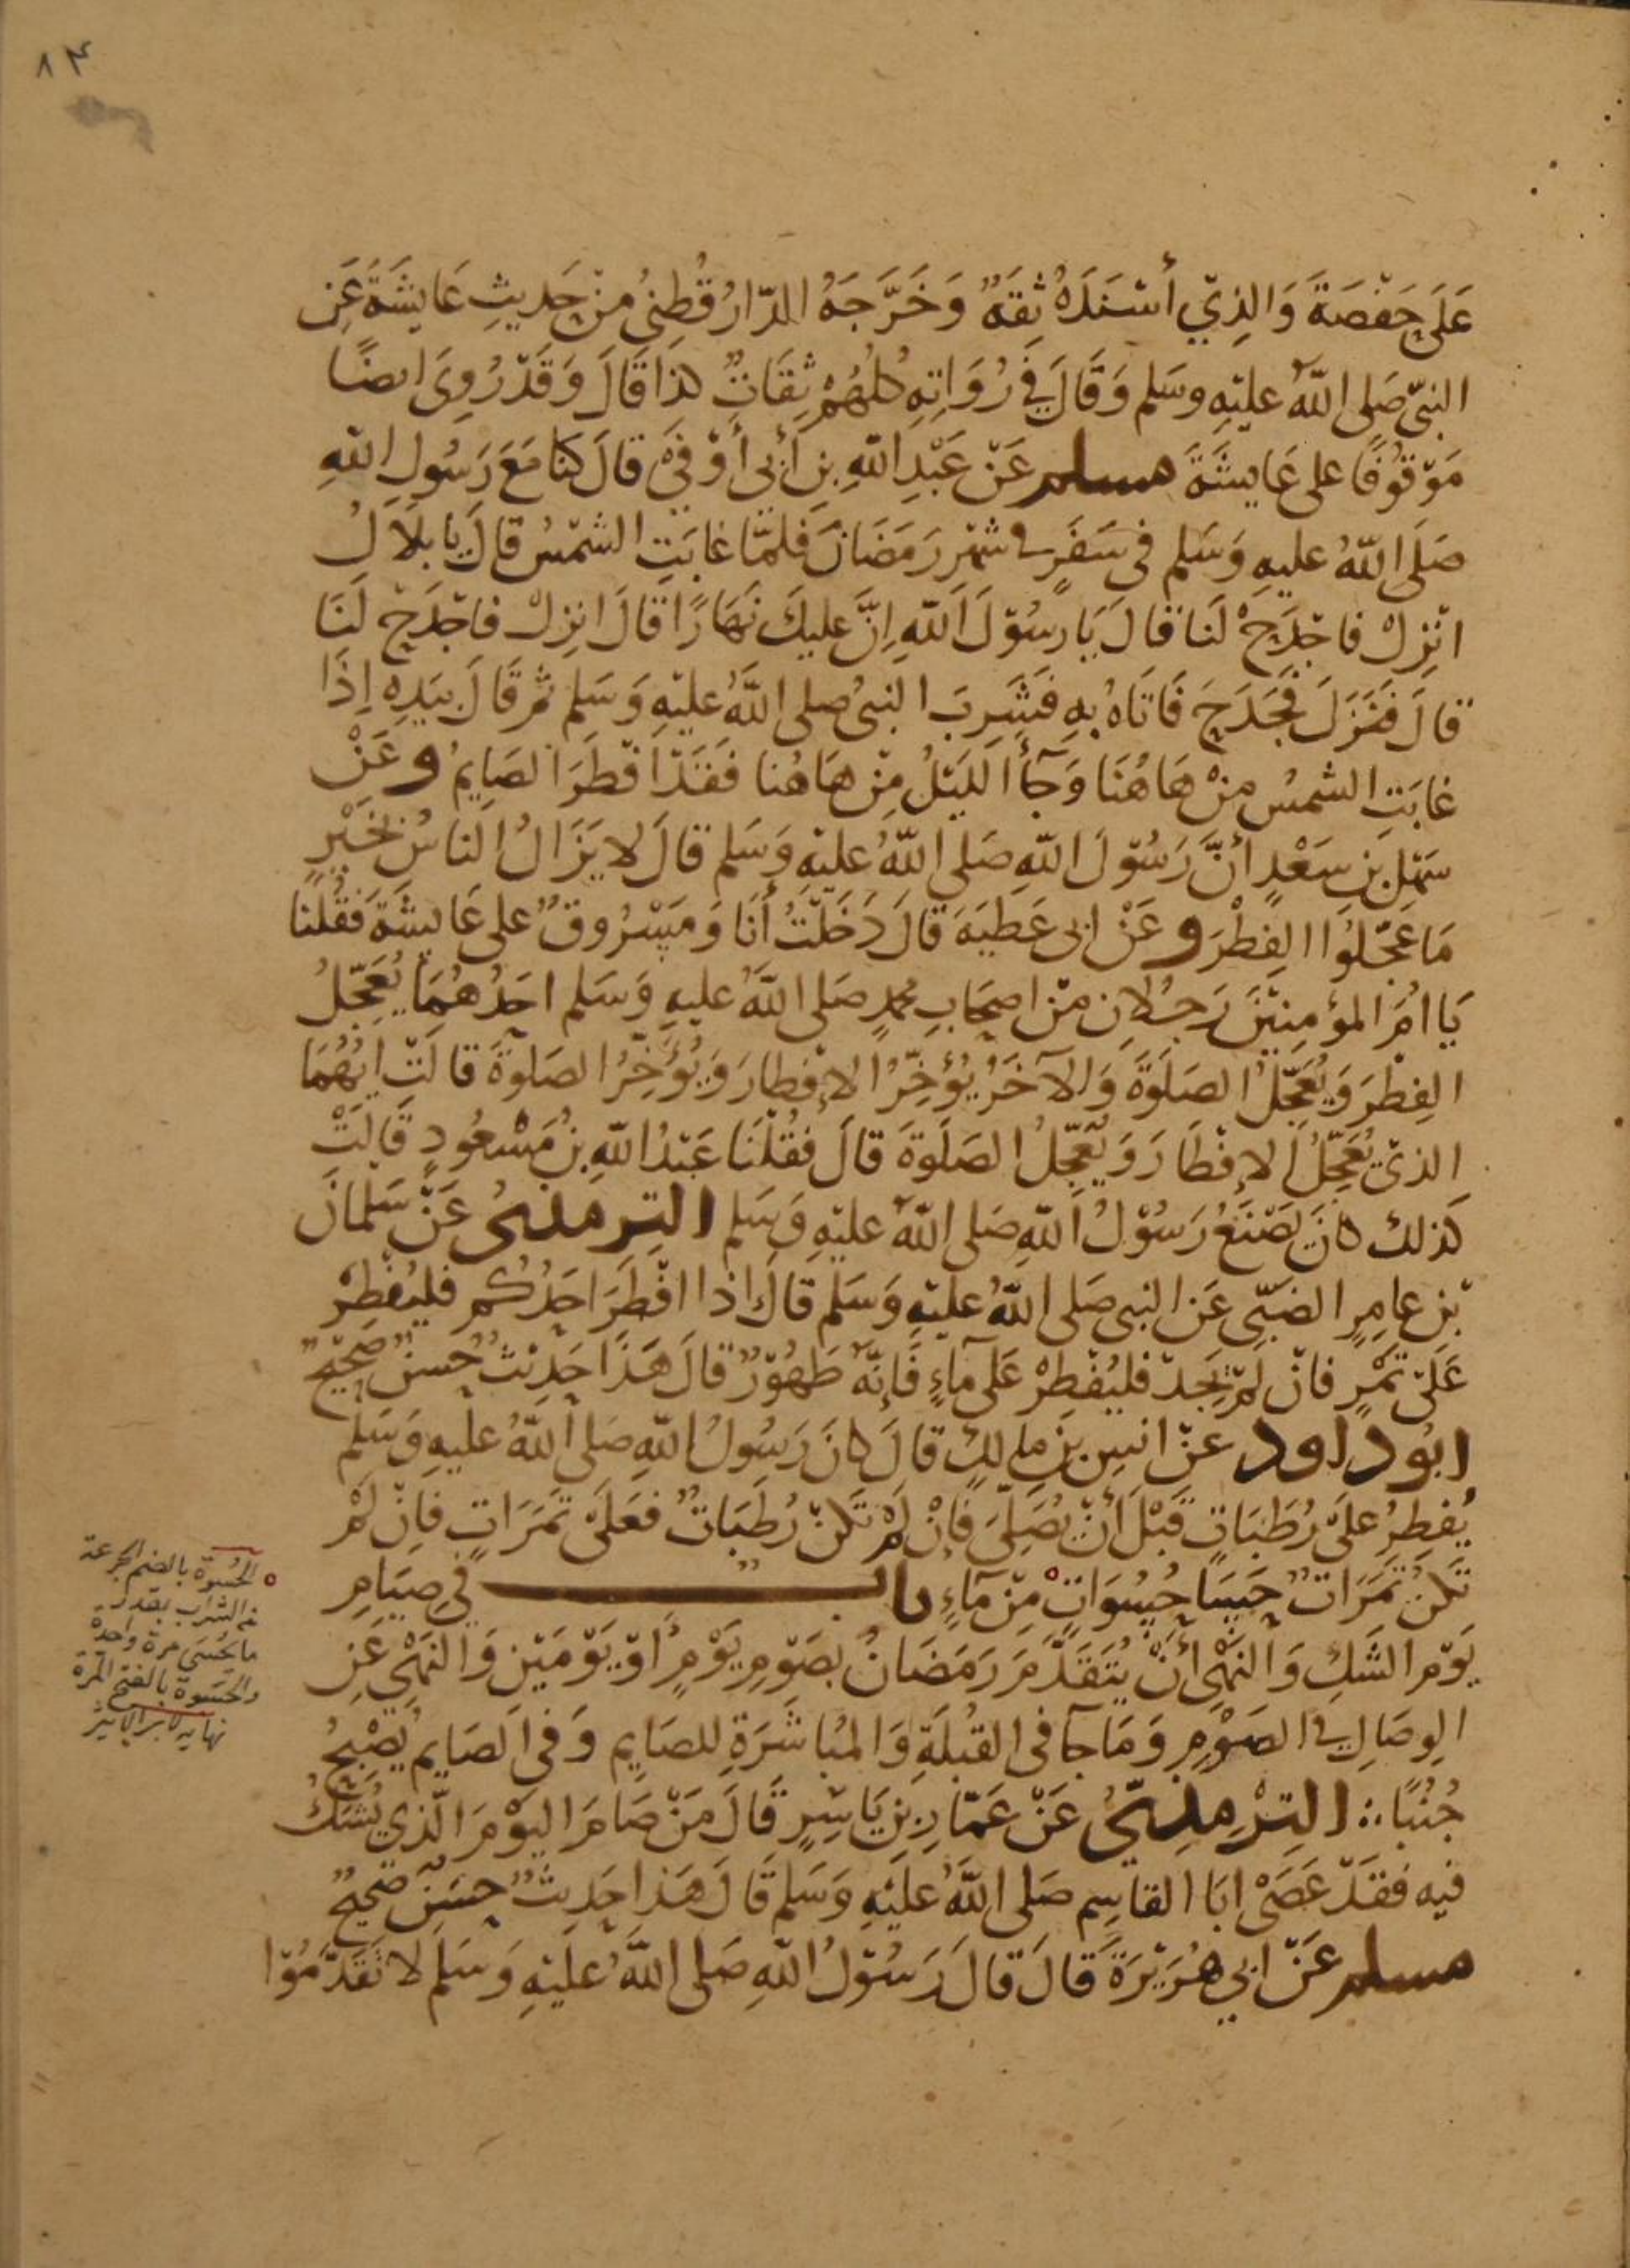 ٨٣
عَلَى حَفْصَةَ وَالَّذِي أَسْنَدَهُ ثِقَةٌ وَخَرَّجَهُ الدَّارَقُطْنِيُ مِنْ حَدِيثِ عَايِشَةَ عَنِ
النبيّ صَلى اللهُ عليْهِ وسَلم وَقَالَ فِي رُوَاتِهِ كلهُمْ ثِقَاتٌ كذا قَالَ وَقَدْ رُوِيَ ايضًا
مَوْقُوفًا على عَايشَةَ مسلم عَنْ عَبْدِ اللهِ بنِ أَبي أَوْفَىْ قالَ كنا مَعَ رَسُولِ اللهِ
صَلى اللهُ عليهِ وَسَلم في سَفَرٍ في شهْر رَمَضَانَ فلمّا غابَتِ الشمْسُ قالَ يا بلَالُ
انْزِلْ فاجْدَحْ لَنا قالَ يَا رسُوْلَ اللهِ اِنَّ عليكَ نَهَارًا قالَ انزِلْ فاجْدَحْ لَنَا
قالَ فَنَزَلَ فَجَدَحَ فَاتَاهُ بِهِ فَشَرِبَ النبيُ صلى اللهُ عليْهِ وَسَلم ثم قَالَ بيَدِهِ اِذَا
غابَتِ الشمسُ مِنْ هَاهُنَا وَجَآءَ اللَيْلُ مِنْ هاهُنا فَقَدْ افْطَرَ الصَايِمُ وعَنْ
سَهْلِ بنِ سَعْدٍ أَنَّ رَسُوْلَ اللهِ صَلى اللهُ عليْهِ وَسَلم قالَ لا يَزَالُ الناسُ بخَيْرٍ
مَا عَجَّلُوا الفِطْرَ وعَنْ ابى عَطِيَةَ قالَ دَخَلْتُ أَنَا وَمَسْرُوقٌ على عَايشَةَ فَقُلنا
يَا امَّ المؤمِنِيْنَ رَجُلانِ مِنْ اصحَابِ محمدٍ صَلى اللهُ عليهِ وَسَلم احَدُهُمَا يُعَجِّلُ
الفِطْرَ وَيُعَجِّلُ الصَلوٰةَ وَالآخَرُ يُؤَخِّرُ الاِفطارَ وَيُؤَخِّرُ الصَلوٰةَ قالَتْ ايّهُمَا
الذيْ يُعَجِّلُ الاِفْطَارَ وَيُعَجِّلُ الصَلَوةَ قالَ فقُلْنَا عَبْدُ اللهِ بنُ مَسْعُودٍ قَالَتْ
كَذلك كانَ يَصْنَعُ رَسُوْلُ اللهِ صَلى اللهُ عليْهِ وَسَلم التِرمذيُ عَنْ سَلْمَانَ
بْنِ عامِرٍ الضَبّي عَنِ النبي صَلى اللهُ عليْهِ وَسَلم قالَ اذا افْطَرَ احَدُكُم فليُفْطِرْ
عَلَىْ تَمْرٍ فانْ لمْ يَجدْ فليُفْطِرْ عَلى مآءٍ فَإِنَّهُ طَهُوْرٌ قالَ هَذَا حَدِيْثٌ حُسَنٌ صَحِيْحٌ
ابُو داود عنْ انسِ بنِ مٰلِكٍ قالَ كانَ رَسُولُ اللهِ صَلى اللهُ عليهِ وَسَلم
يُفطِرُ عَلَى رُطَبَاتٍ قَبْلَ أَنْ يُصَلِّيَ فَإِنْ لمْ تَكنْ رُطَبَاتٌ فعَلَى تَمَرَاتٍ فاِنْ لمْ
تَكنْ تَمَرَاتٌ حَسَا حُسُوَاتٍ مِنْ مآءٍ باب في صِيَامِ
يَوْمِ الشَكِ وَالنَهْيِ أَنْ يُتَقَدَّمَ رَمَضَانُ بصَوْمِ يَوْمٍ اوْ يَوْمَيْنِ وَالنَهْيِ عَنِ
الوِصَالِ في الصَوْمِ وَمَا جآ في القُبْلَةِ وَالمُبَاشَرَةِ للصَايِمِ وَفي الصَايِمِ يُصْبِحُ
جُنُبًا ؞ التِرْمِذِيُّ عَنْ عَمّارِ بنِ يَاسِرٍ قَالَ مَنْ صَامَ اليَوْمَ الَّذِي يُشَكُ
فيه فقَدْ عَصَىْ ابَا القاسِمِ صَلى اللهُ عَليْهِ وَسَلم قَالَ هَذا حَدِيثٌ حسَنٌ صَحِيحٌ
مسلم عَنْ ابي هُرَيْرَةَ قَالَ قالَ رَسُوْلُ اللهِ صَلى اللهُ عليْهِ وَسَلم لا تقَدَّمُوْا
الحُسْوَة بالضم الجرعة
من الشراب بقدر
ما يحسى مرة واحدة
والحَسْوَة بالفتح المرة
نهايه لابن الاثير